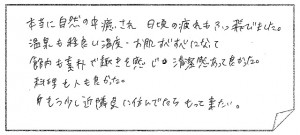 本当に自然の中癒され 日頃の疲れもふっ飛びました。
温泉も程良い温度・お肌すべすべになって
館内も素朴で趣きを感じ 清潔感あって良かった。
料理も人も良かった。
もう少し近隣県に住んでたら もって来たい。